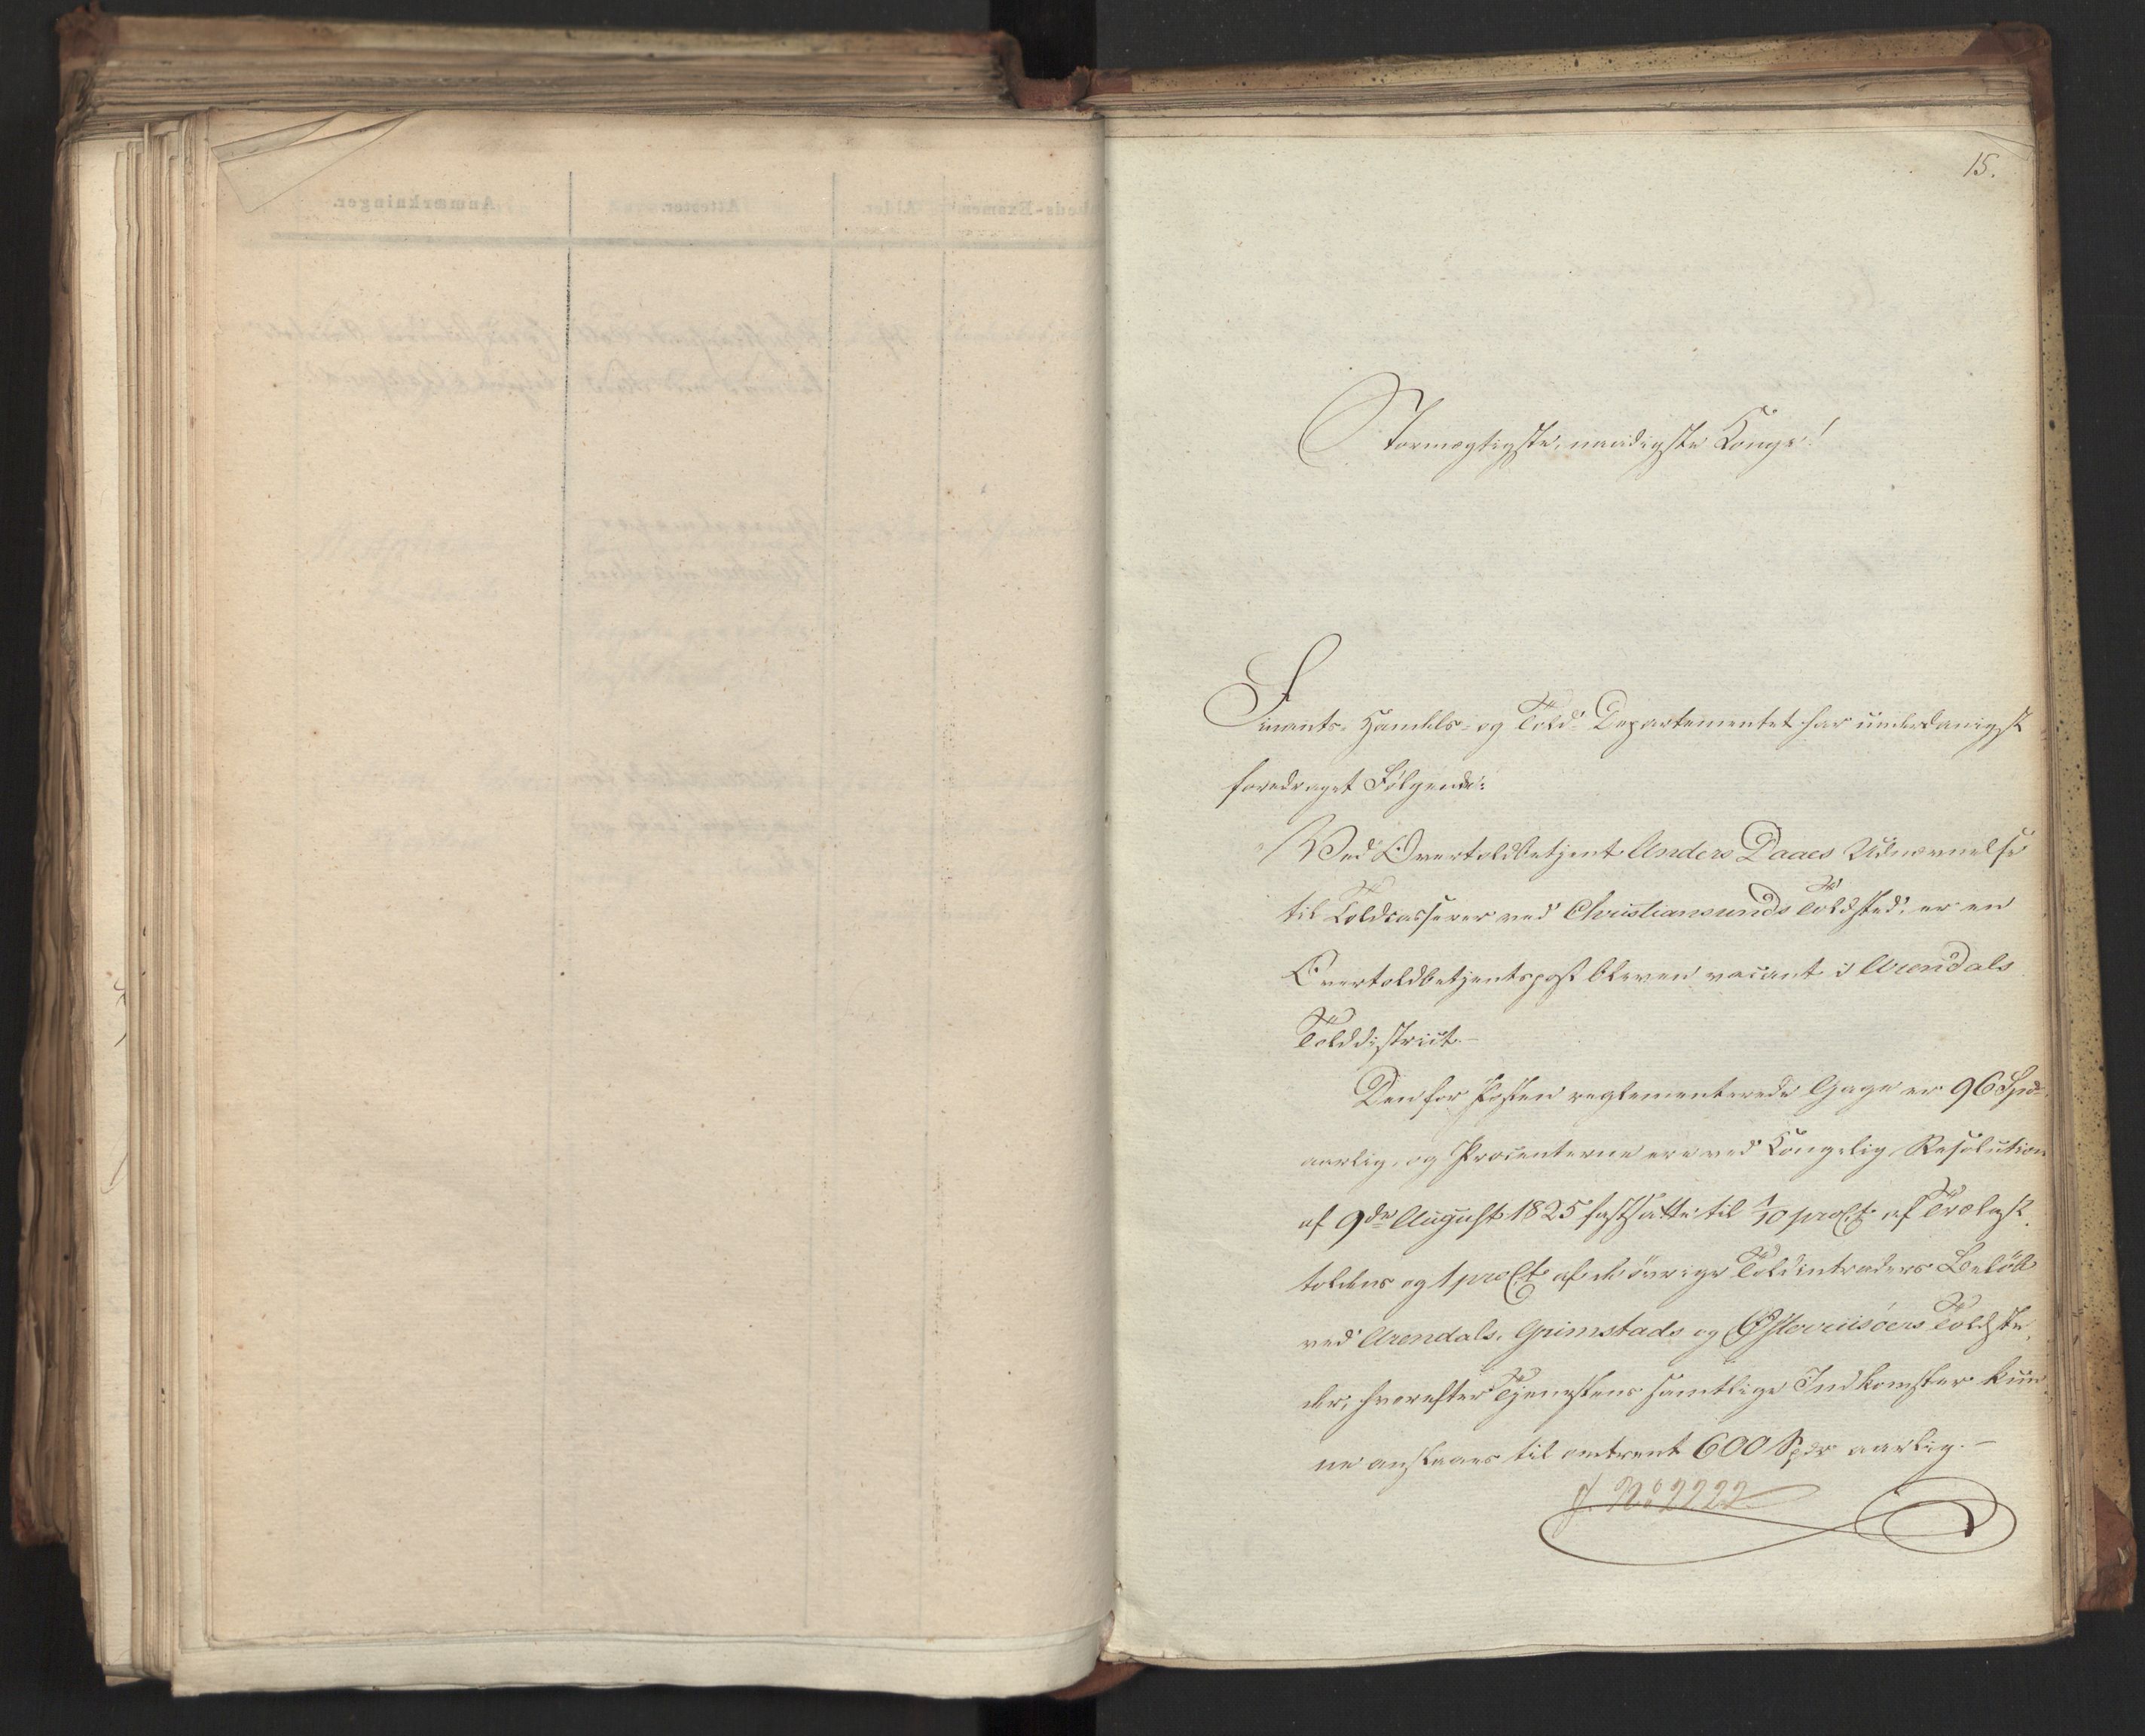 15.
Stormægtigste, naadigste Konge!
Finants- Handels- og Told-Departementet har underdanigst
foredraget Følgende:
"Ved Overtoldbetjent Anders Daaes Udnævnelse
til Toldcasserer ved Christiansunds Toldsted, er en
Overtoldbetjentspost bleven vacant i Arendals
Tolddistrict.-
Den for Posten reglementerede Gage er 96 Spd
aarlig, og Procenterne ere ved Kongelig Resolution
af 9de August 1825 fastsatte til 1/10 proCt. af Trælast
toldens og 1 proCt. af de øvrige Toldintraders Beløb
ved Arendals, Grimstads og Østerriisøers Toldste
der, hvorefter Tjenestens samtlige Indkomster kun
ne anslaaes til omtrent 600 Spdr aarlig.-
J. No 2222